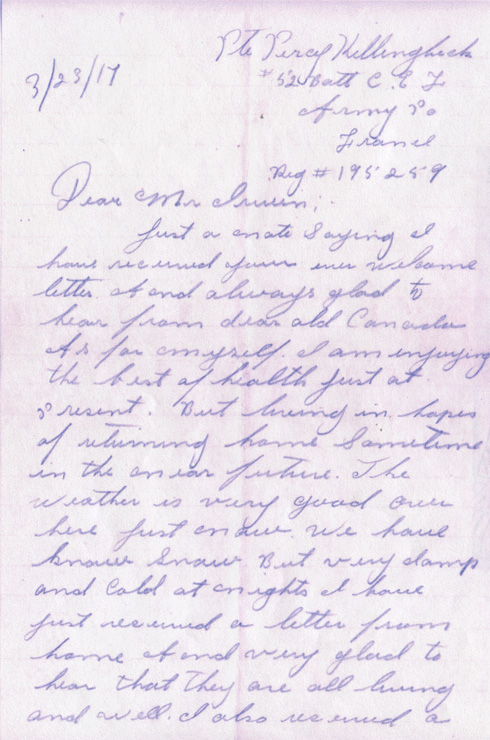 Pte Percy Killingbeck
3/23/17
#52 Batt C. E. F
Army Po
France
Reg # 195259
Dear Mr Irwin;
Just a note Saying I
have received your ever welcome
letter And always glad to
hear from dear old Canada
As for myself. I am enjoying
the best of health just at
Present. But living in hopes
of returning home Sometime
in the near future. The
weather is very good over
here just now. We have
know Snow. But very damp
and Cold at nights I have
just received a letter from
home And very glad to
hear that they are all living
and well. I also received a